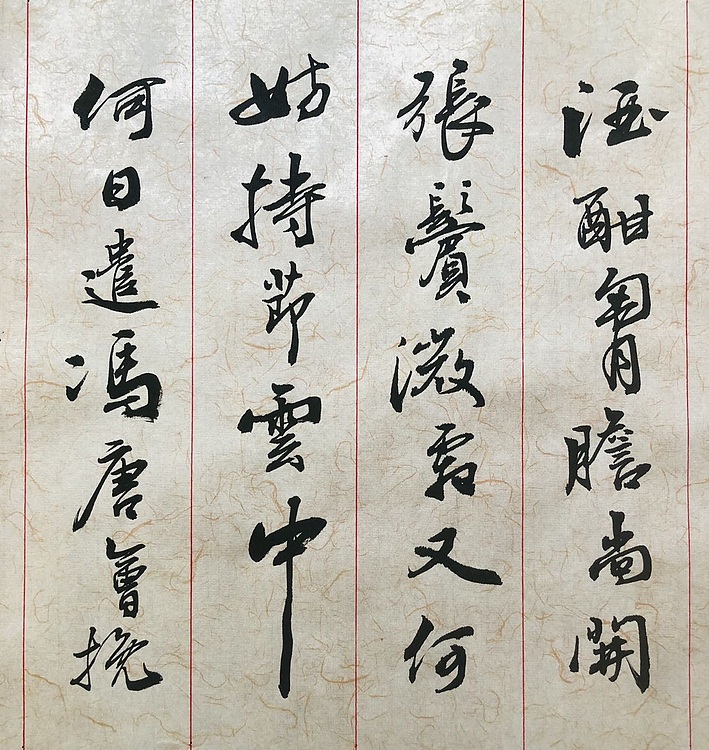 酒酣胷膽尚開
張鬢微霜又何
妨持節雲中
何日遣馮唐會挽